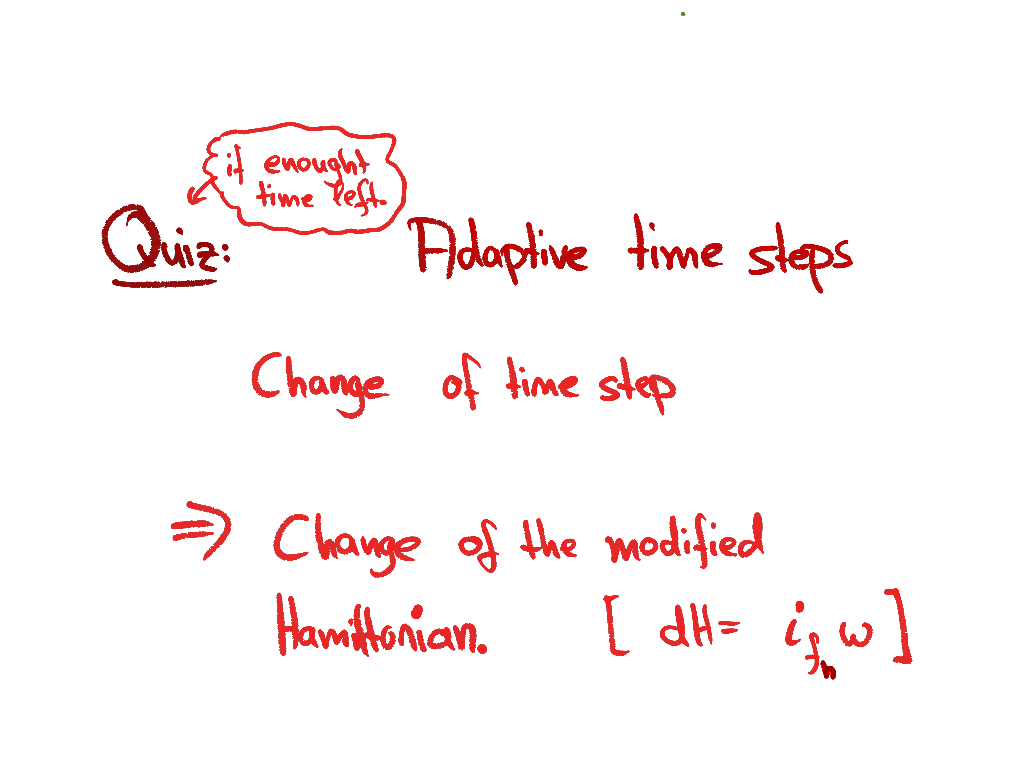 if enought
time left.
Quiz: Adaptive time steps
Change of time step
⇒ Change of the modified
Hamiltonian. [ dH = i_{f_h} ω ]